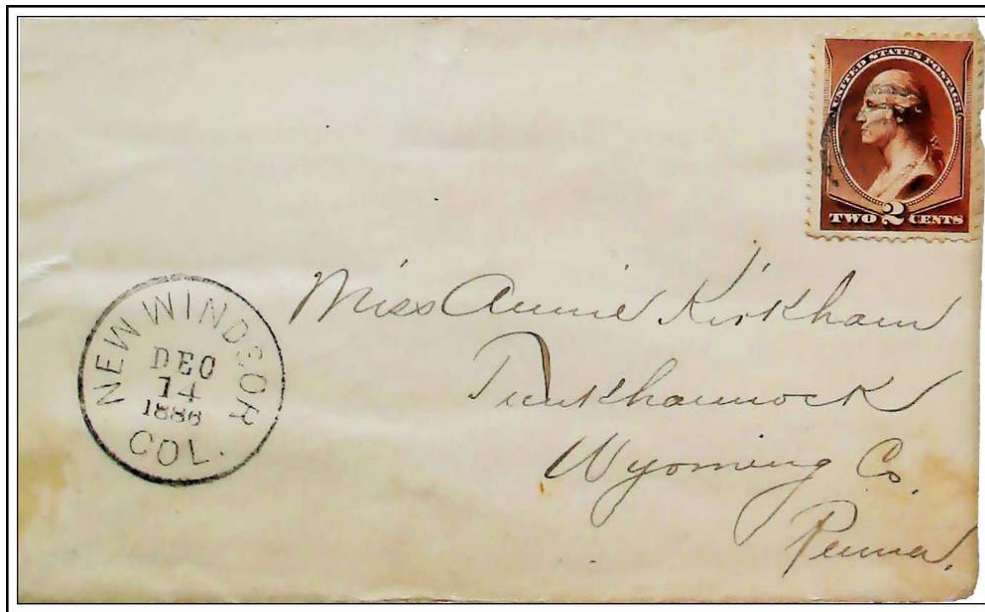 UNITED STATES POSTAGE
TWO 2 CENTS
NEW WINDSOR
DEC
14
1886
COL.
Miss Annie Kirkham
Tunkhannock
Wyoming Co.
Penna.